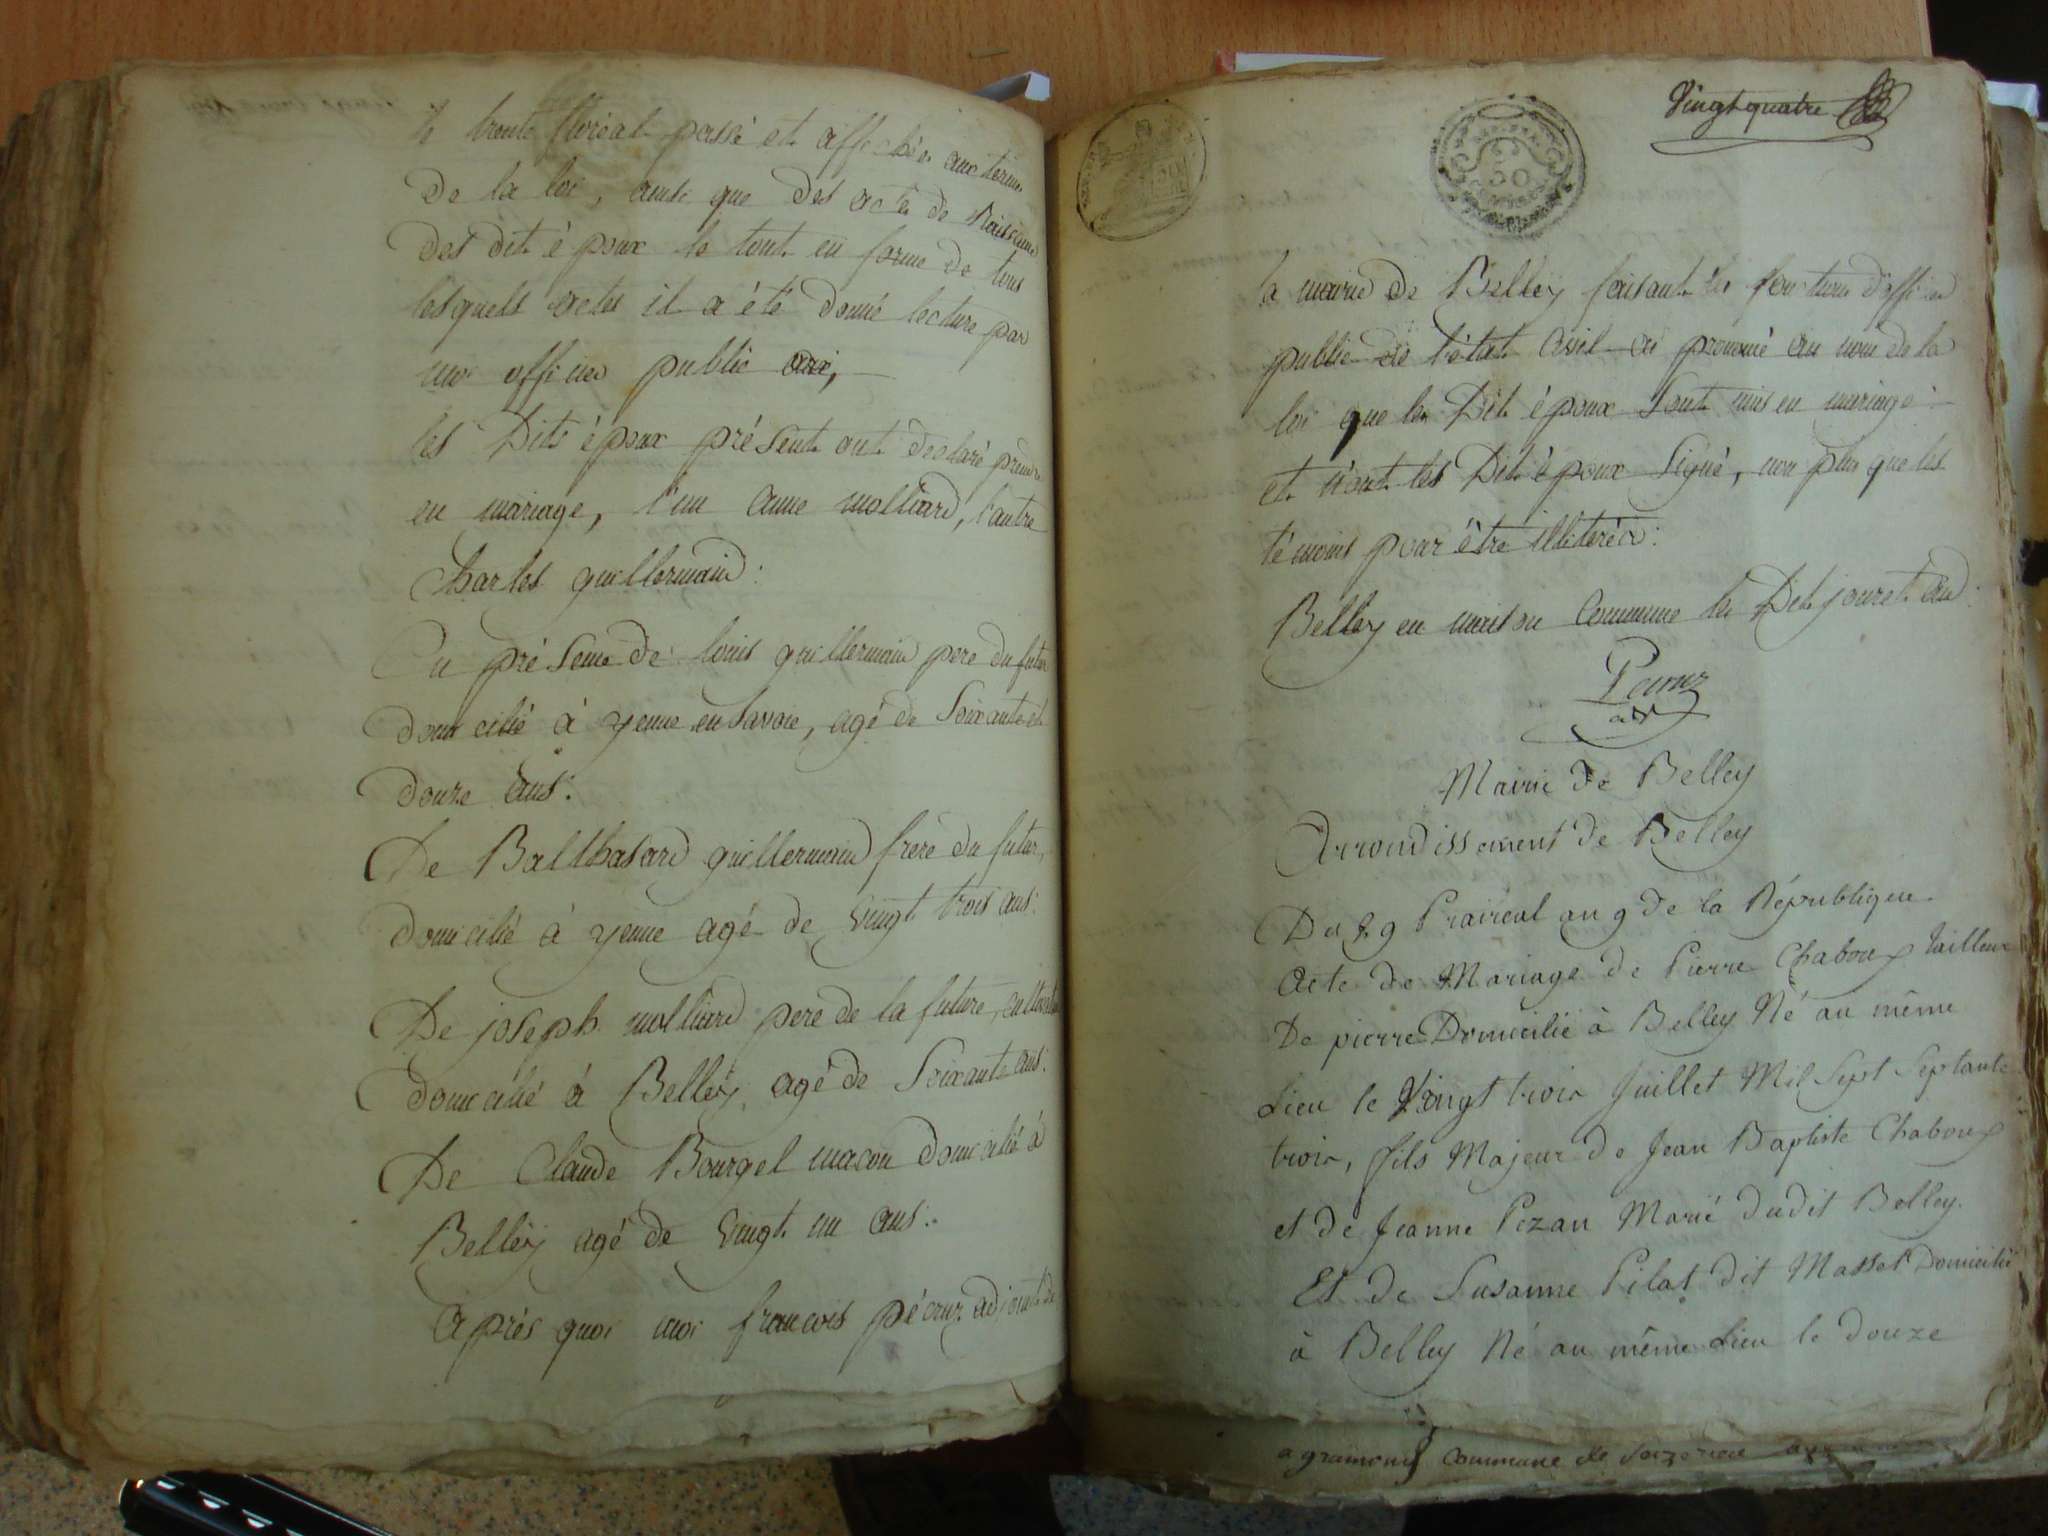 le trente floréal passé et affichée aux termes
de la loi, ainsi que des actes de Naissance
des dits époux le tout en forme de tous
lesquels actes il a été donné lecture par
moi officier public
les Dits époux présents ont déclaré prendre
en mariage, l'un anne molliard, l'autre
Charles guillermain :
En présence de louis guillermain pere du futur
domicilié à yenne en Savoie, agé de Soixante et
douze ans :
De Balthasard guillermain frere du futur,
domicilié à yenne agé de vingt trois ans :
De joseph molliard pere de la future, cultivateur
domicilié à Belley, agé de Soixante ans :
De Claude Bourgel macon domicilié à
Belley agé de vingt un ans :
après quoi moi francois pécruz adjoint de
Vingt quatre
50
la mairie de Belley faisant les fonctions d'officier
public de l'état civil ai prononcé au nom de la
loi que les Dits époux sont unis en mariage :
et n'ont les Dits époux Signé, non plus que les
témoins pour être illiterés :
Belley en maison Commune les Dits jour et an :
Pécruz
adt
Mairie de Belley
Arrondissement de Belley
Du 29 Praireal an 9 de la République
Acte de Mariage de Pierre Chaboux tailleur
De pierre Domicilié à Belley Né au même
Lieu le Vingt trois Juillet Mil Sept Septante
trois, fils Majeur de Jean Baptiste Chaboux
et de Jeanne Pezan Marié dudit Belley.
Et de Susanne Pilat dit Masset Domicilié
à Belley Né au même Lieu le douze
commune de